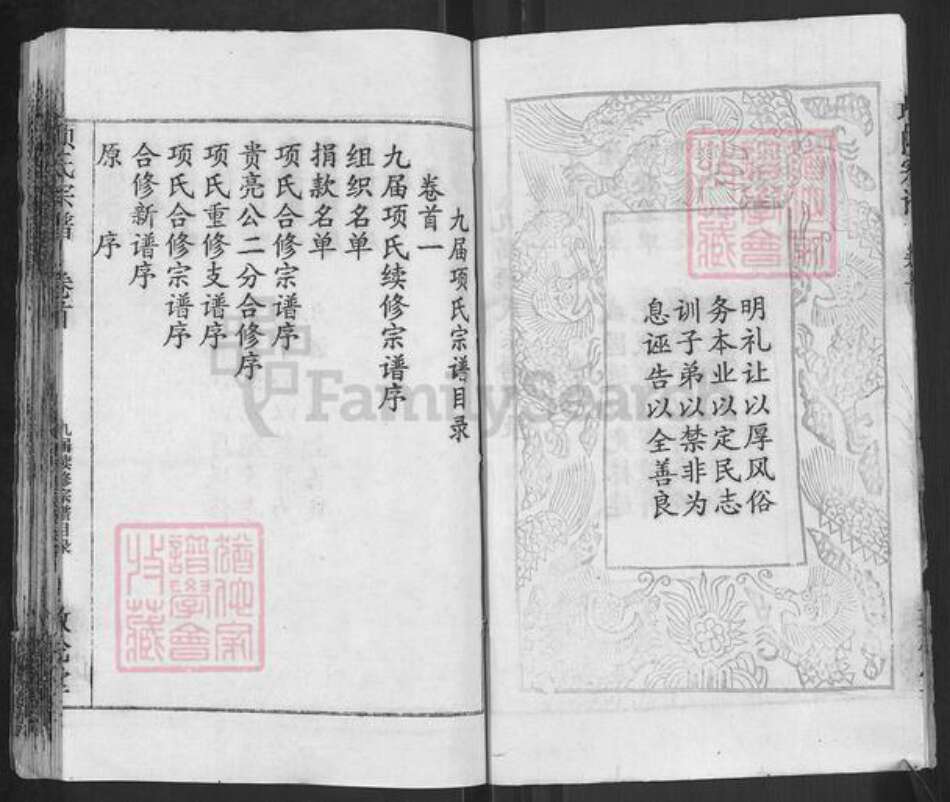 明礼让以厚风俗
务本业以定民志
训子弟以禁非为
息诬告以全善良
九届项氏宗谱目录
卷首一
九届项氏续修宗谱序
组织名单
捐款名单
项氏合修宗谱序
贵亮公二分合修序
项氏重修支谱序
项氏合修宗谱序
合修新谱序
原序
项氏宗谱
卷首
九届续修宗谱目录
FamilySear